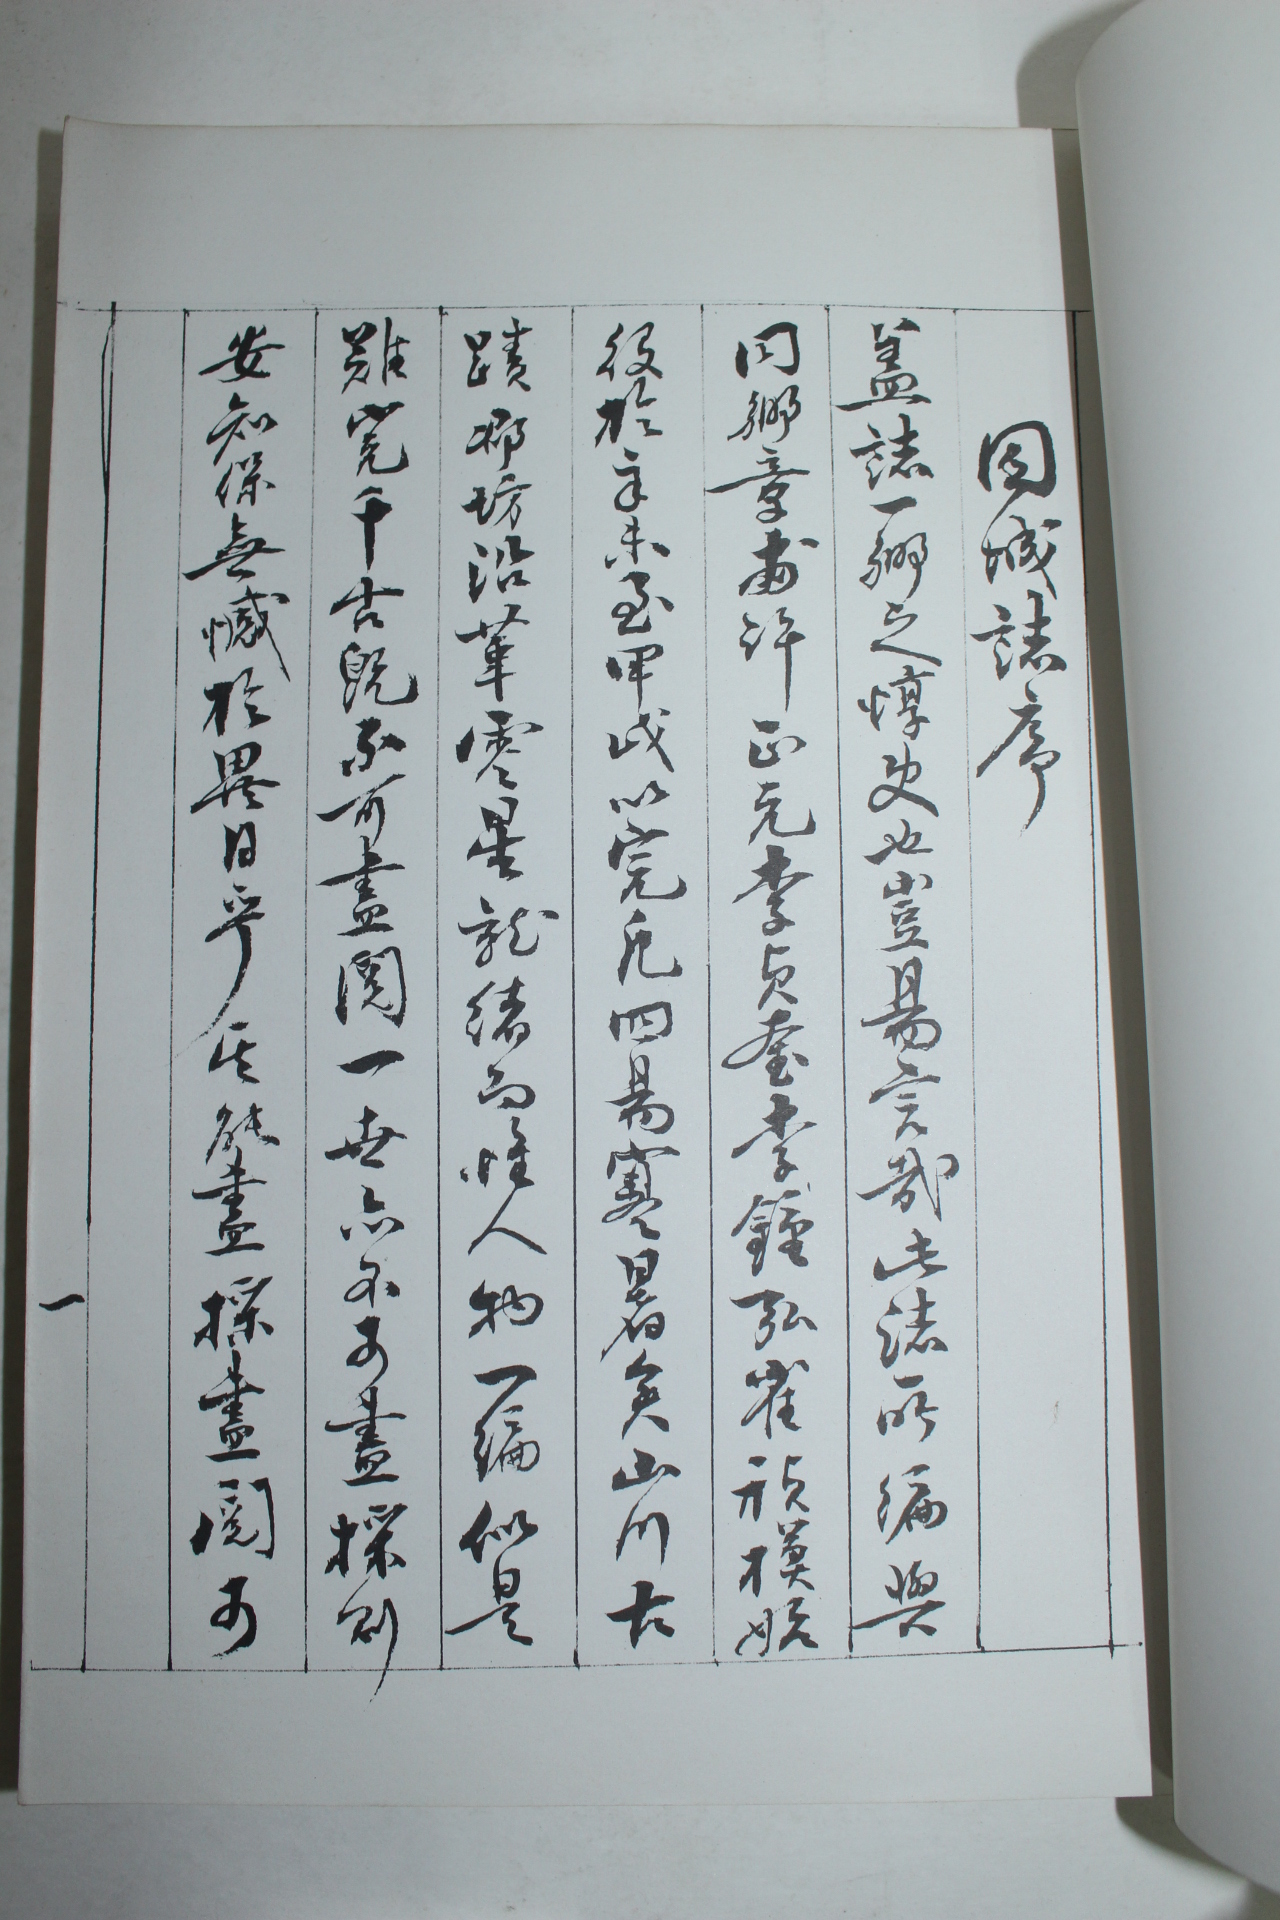 固城誌序
盖誌一鄕之惇史也豈易言哉此誌所編與
同鄕章甫許正元李貞奎李鍾弘崔禎模
役於辛未至甲戌以完凡四易寒暑矣山川古
蹟鄕坊沿革零星就緒而惟人物一編似是
難完千古旣不可盡閱一世亦不可盡採則
安知保無憾於異日乎其能盡採盡閱可
一